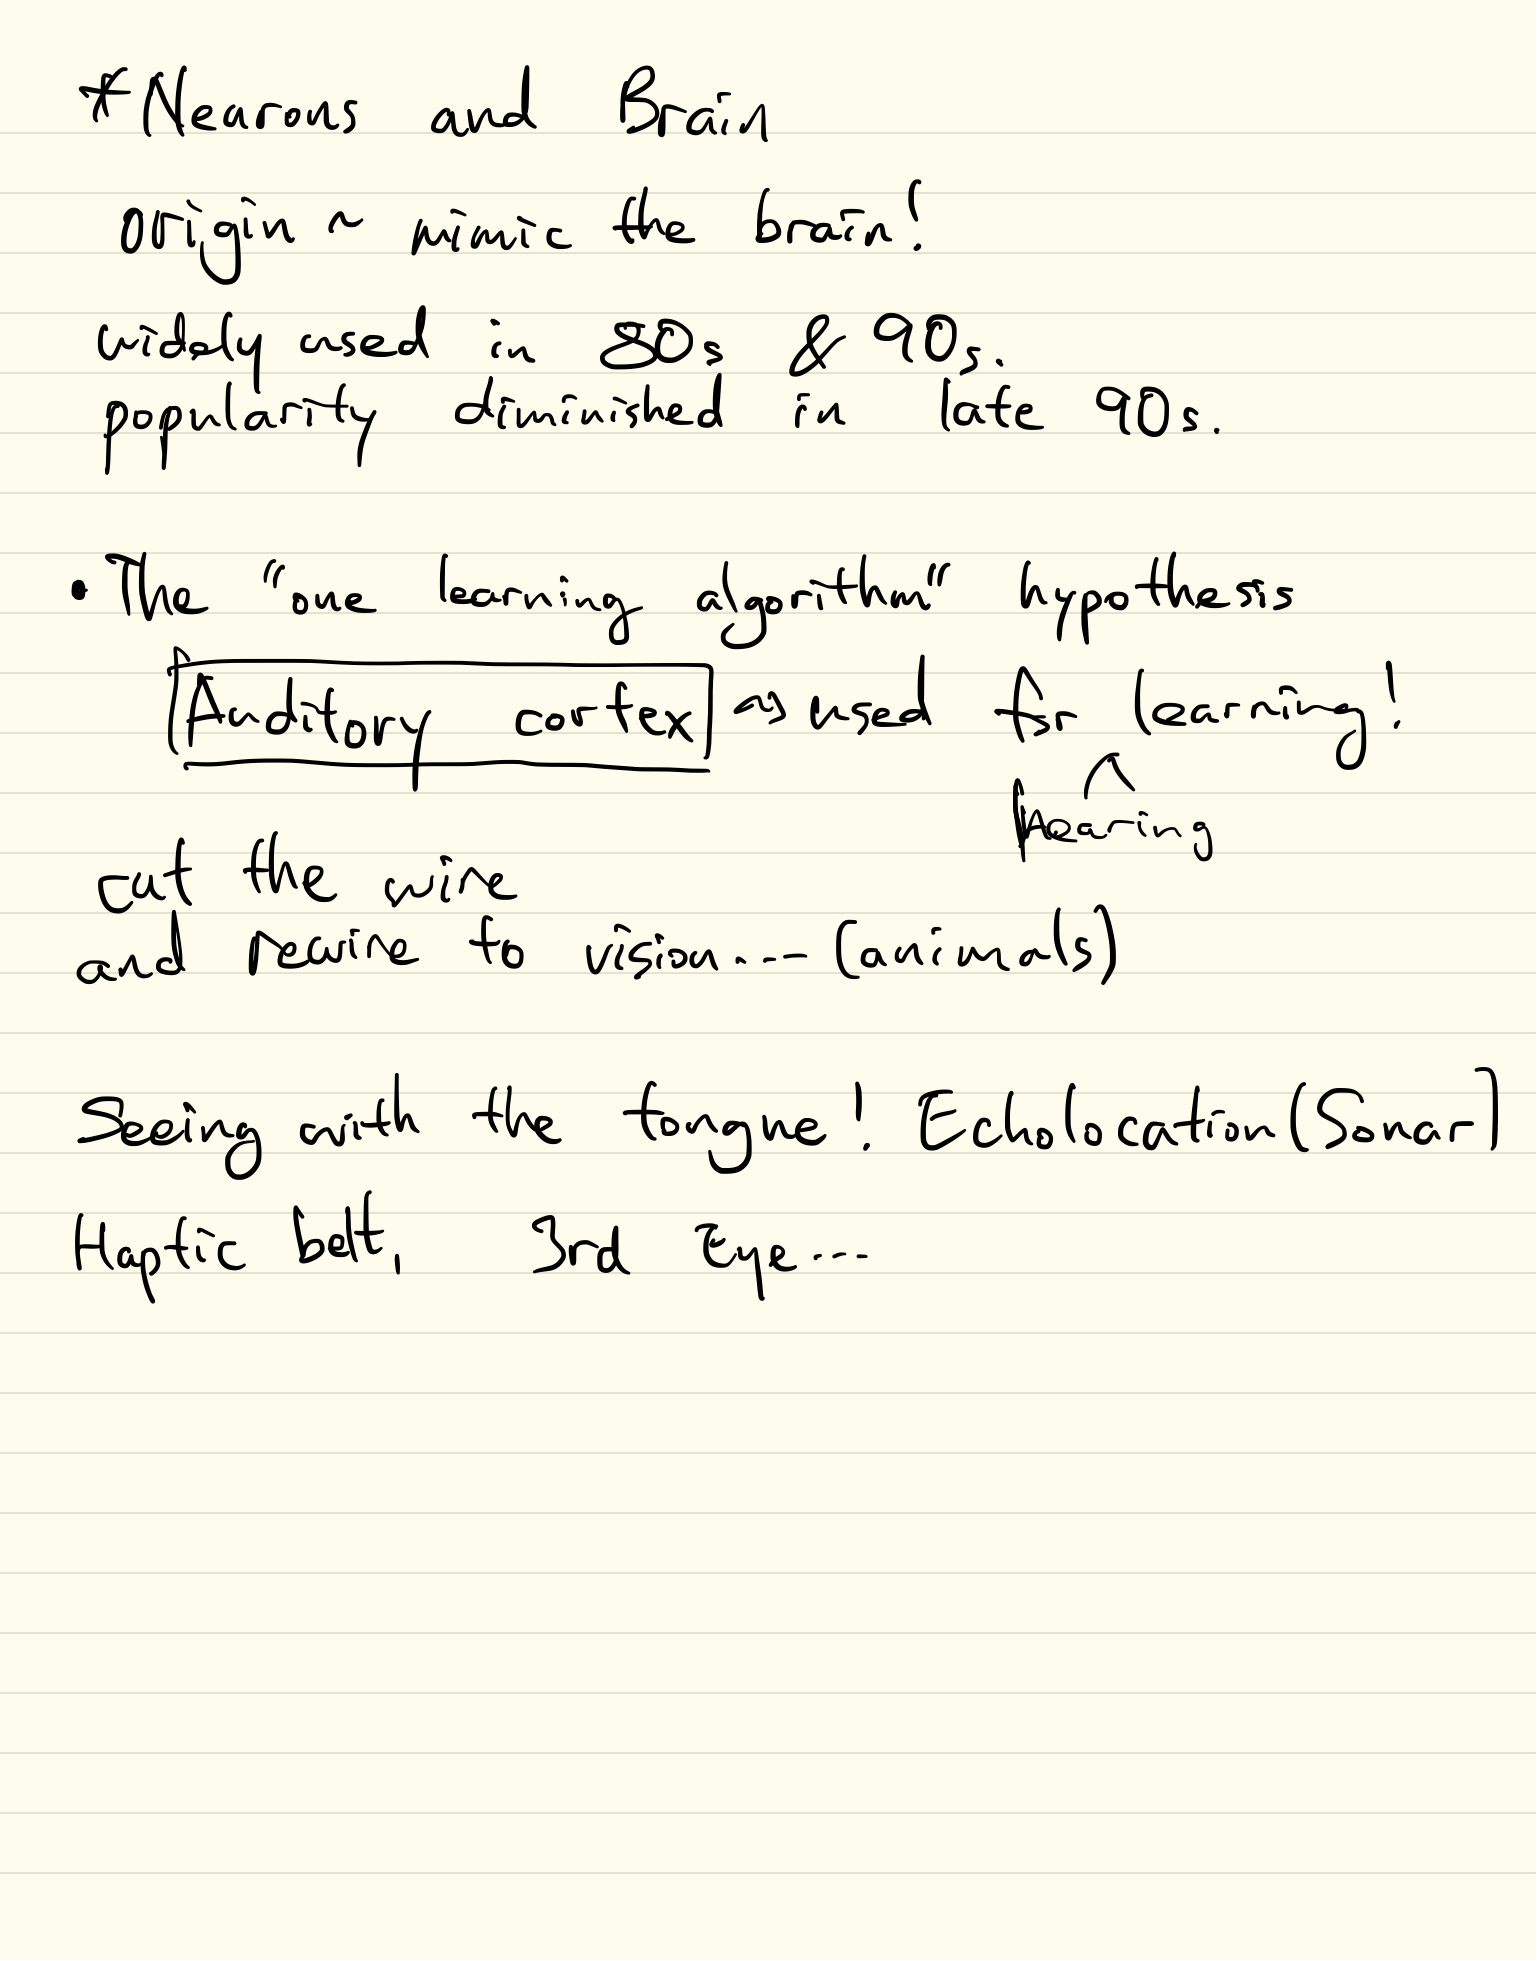 *Nearons and Brain
origin ~ mimic the brain!
widely used in 80s & 90s.
popularity diminished in late 90s.
• The "one learning algorithm" hypothesis
Auditory cortex ~> used for learning!
hearing
cut the wire
and rewire to vision.... (animals)
Seeing with the tongue! Echolocation (Sonar)
Haptic belt, 3rd Eye...